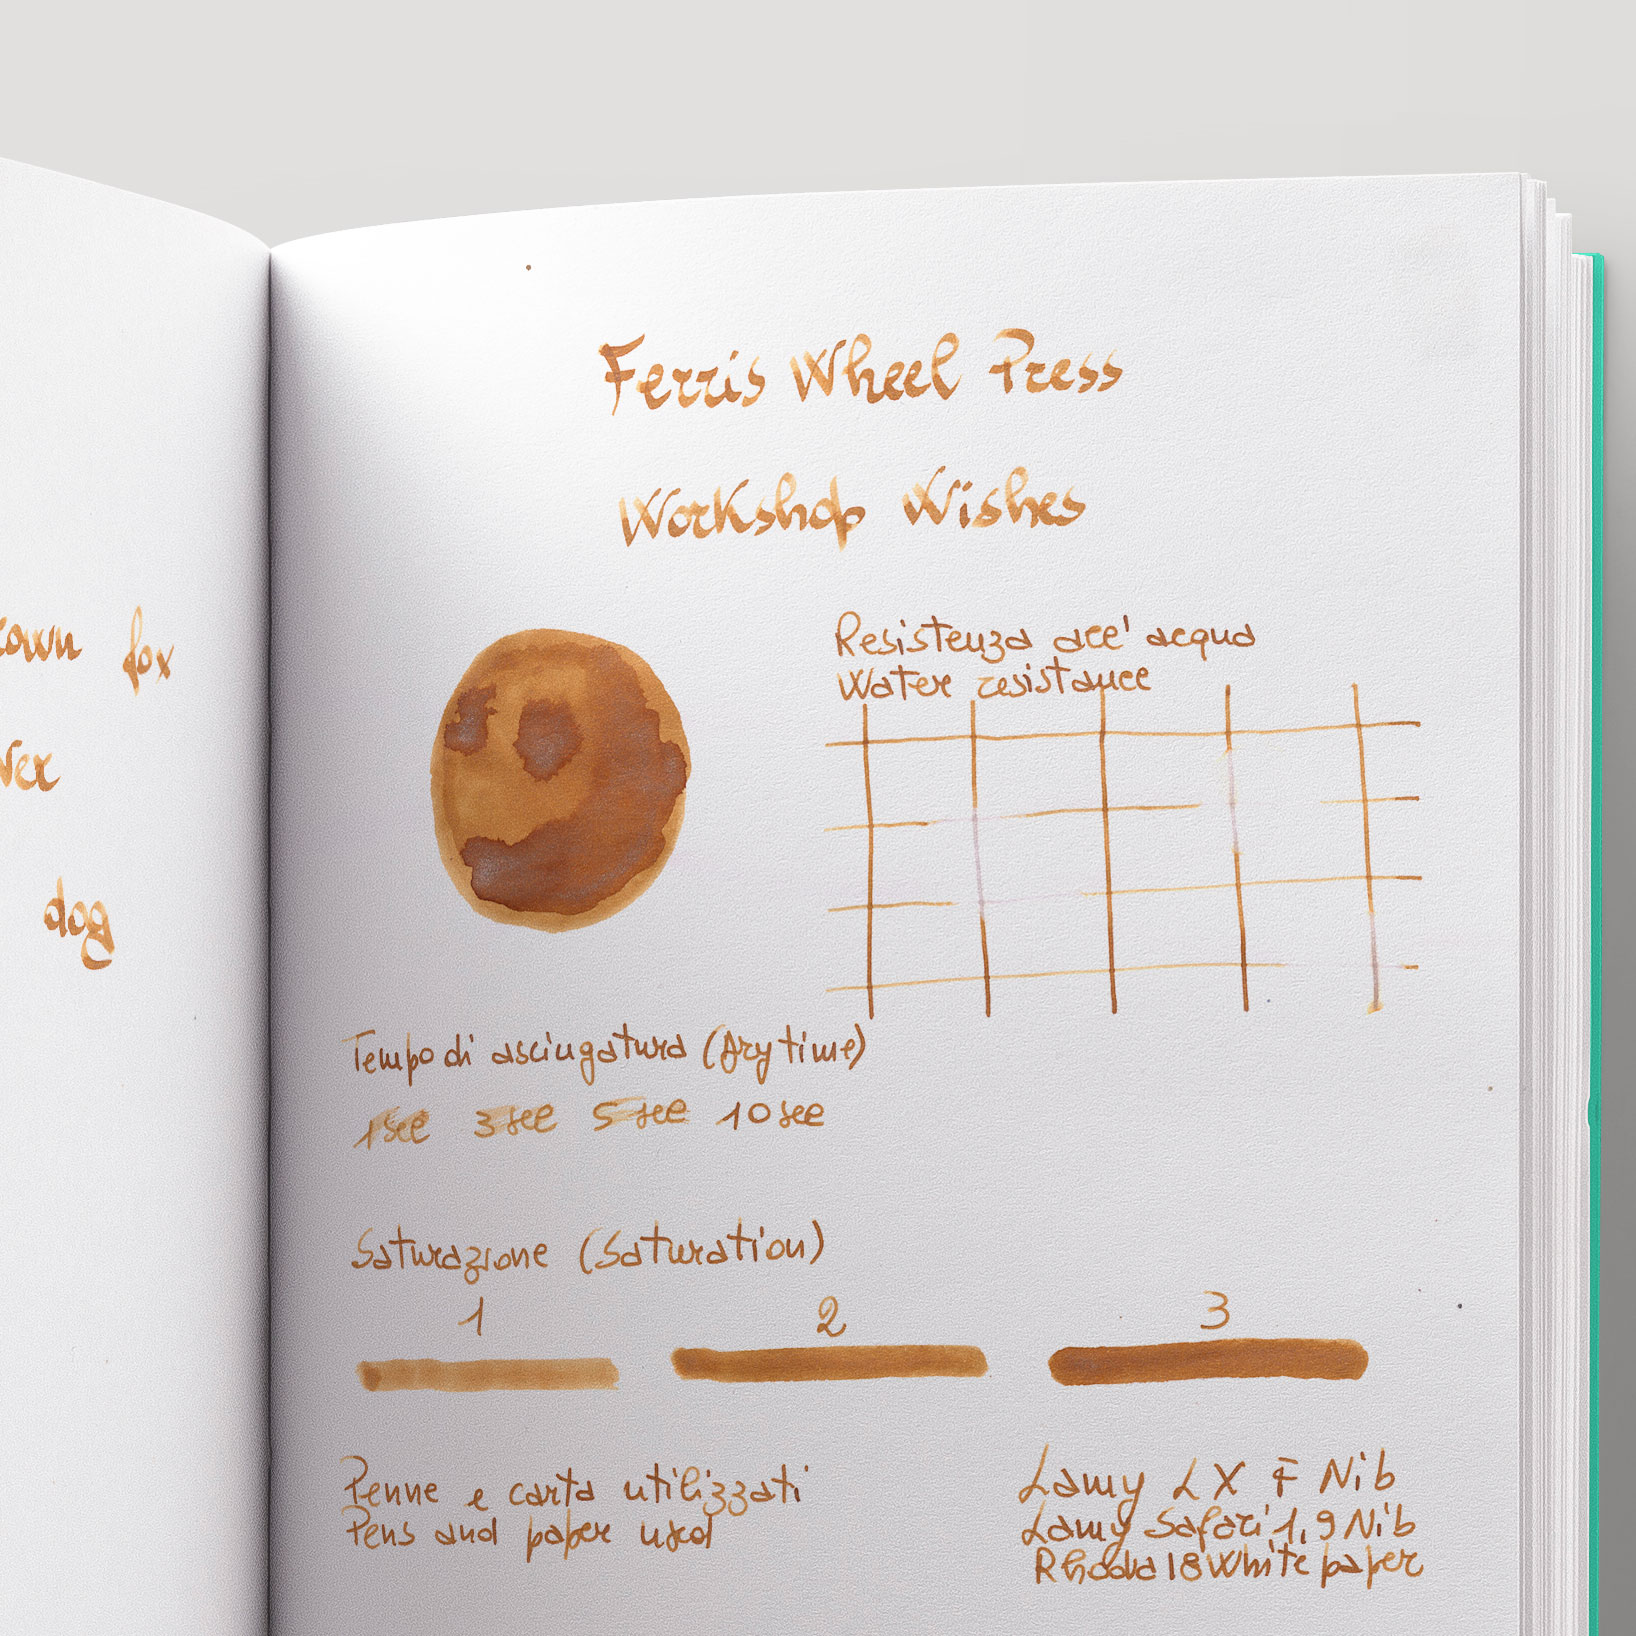 fox
dog
Ferris Wheel Press
Workshop Wishes
Resistenza all'acqua
Water resistance
Tempo di asciugatura (Dry time)
1 sec 3 sec 5 sec 10 sec
Saturazione (Saturation)
1 2 3
Penne e carta utilizzati
Pens and paper used
Lamy LX F Nib
Lamy Safari 1,9 Nib
Rhodia 18 White paper